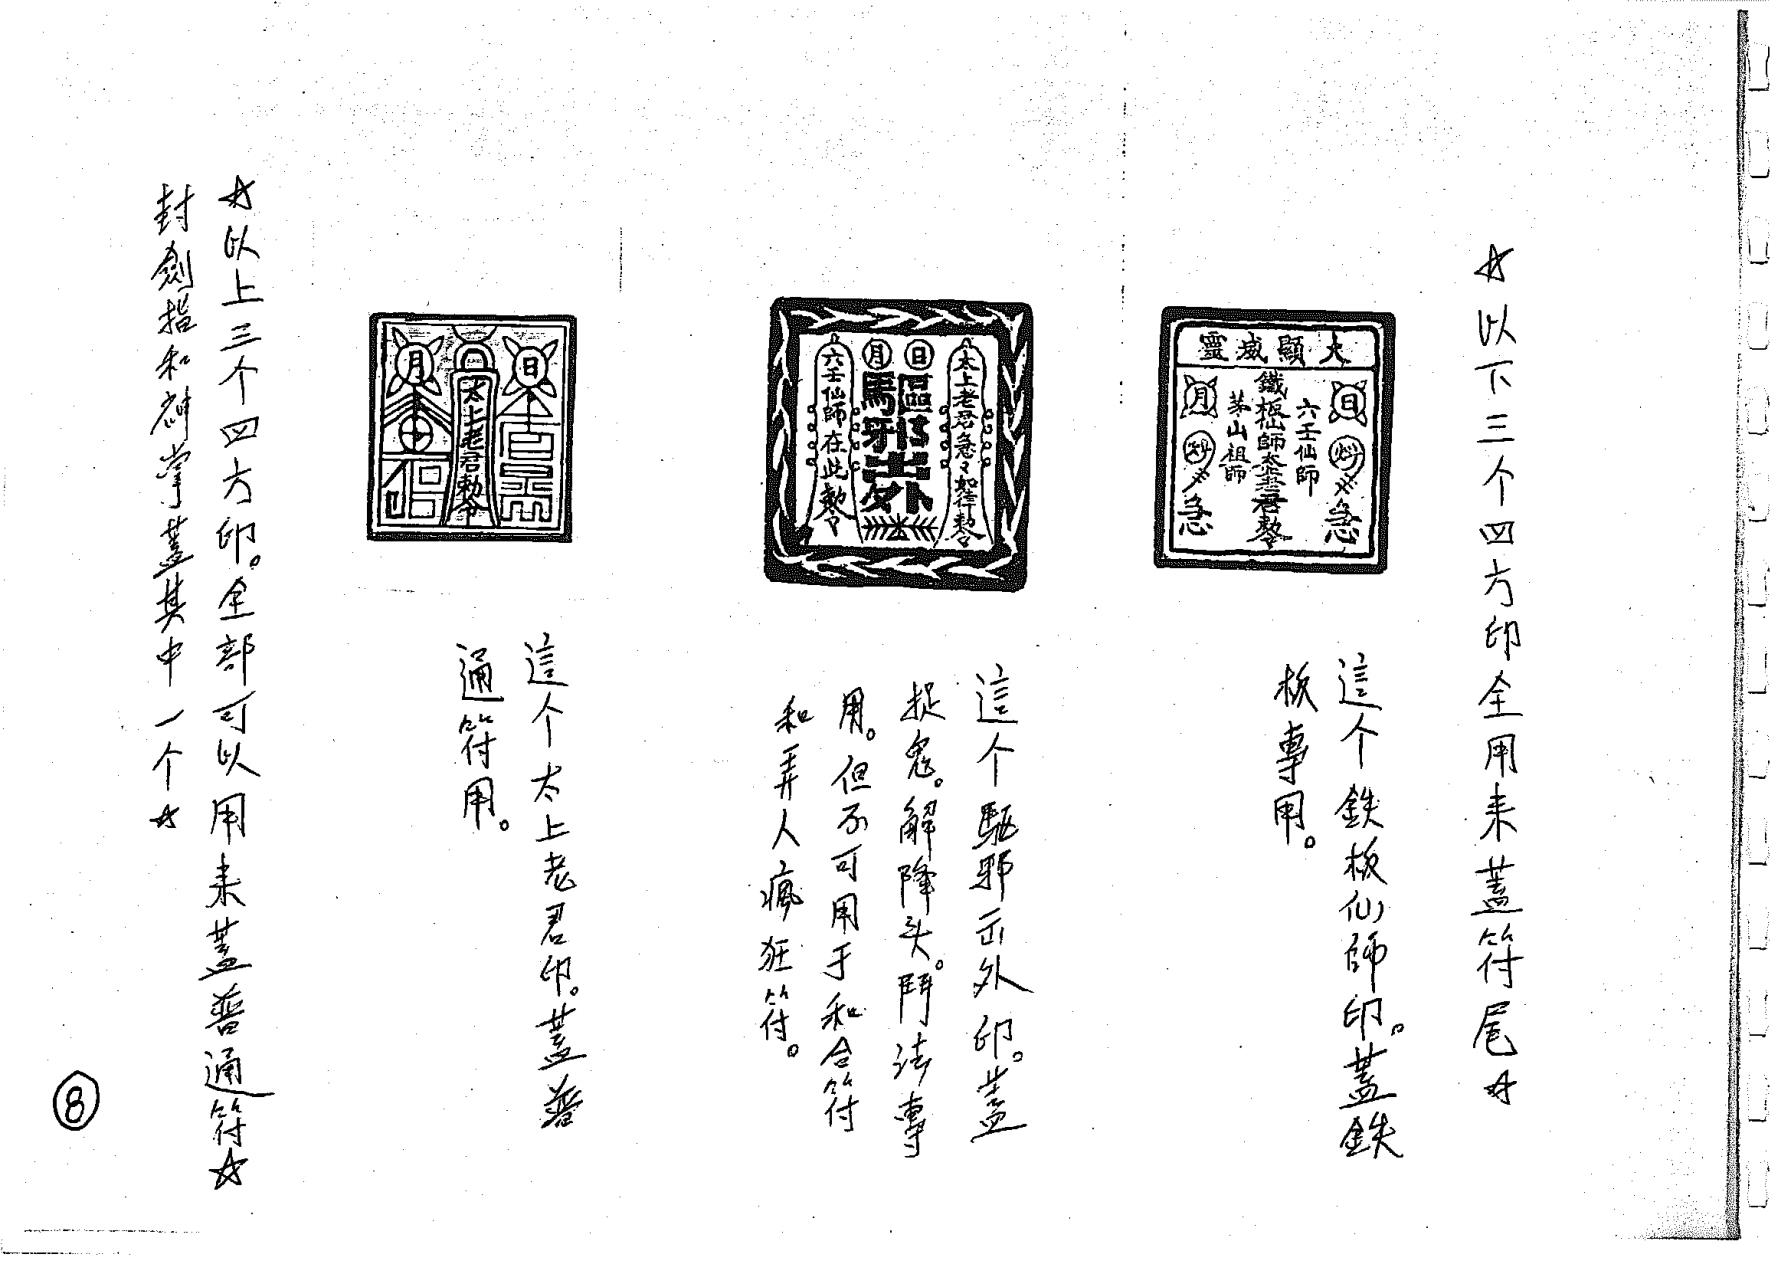 ☆以下三个四方印全用来蓋符尾☆
大顯威靈
日
急
六壬仙師
鐵板仙師
茅山祖師
月
急
這个鉄板仙師印。蓋鉄
板專用。
太上老君急々如律勅令
日
月
六壬仙師在此勅令
這个駆邪出外印。蓋
捉鬼。解降头。鬥法專
用。但不可用于和合符
和弄人瘋狂符。
日
太上老君勅令
月
這个太上老君印。蓋普
通符用。
☆以上三个四方印。全部可以用来蓋普通符☆
封劍指和神掌蓋其中一个☆
8